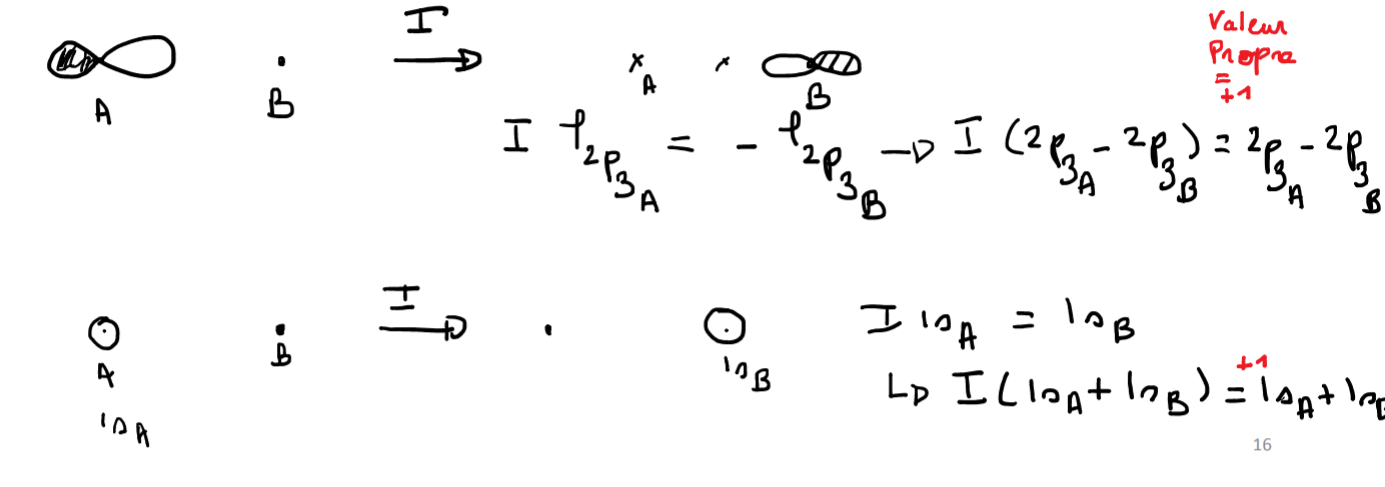 I
Valeur
Propre
=
+1
A
B
A
B
I φ2p3A = - φ2p3B → I (2p3A - 2p3B) = 2p3A - 2p3B
I
A
B
1sA
1sB
I 1sA = 1sB
+1
↳ I (1sA + 1sB) = 1sA + 1sB
16